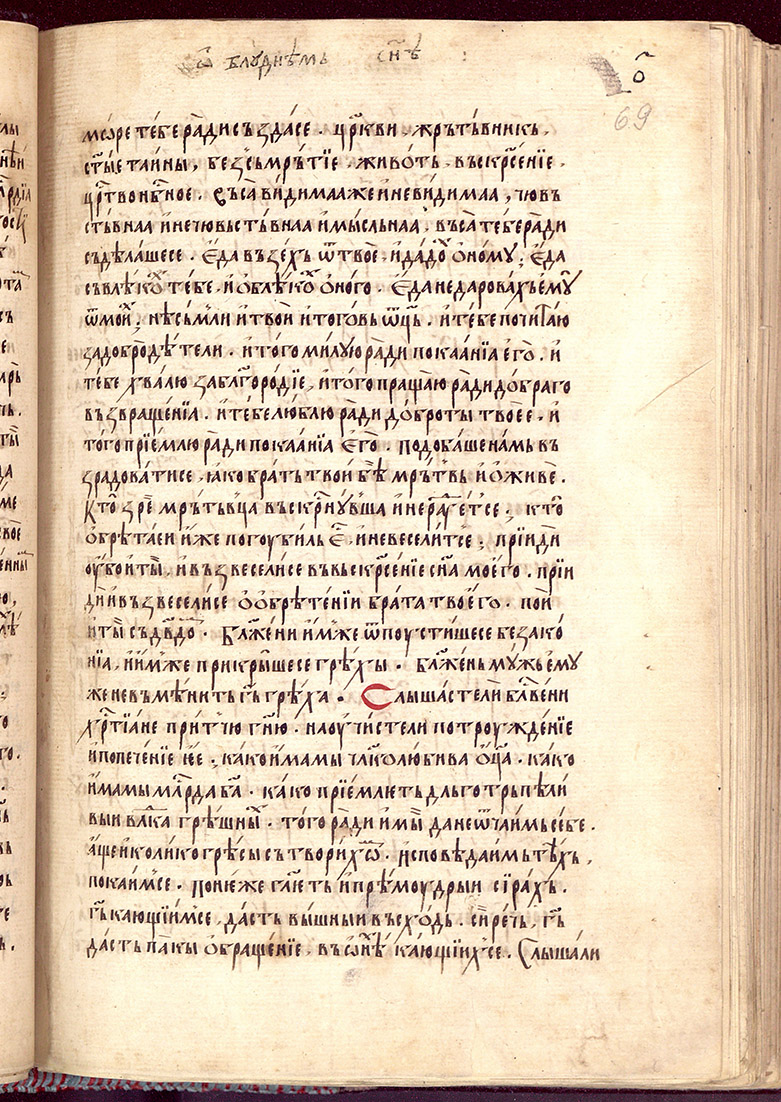 ѡ҃ блꙋднѣмь сн҃ѣ :
о҃
69
мѡре те́бе ра́ди създа́се · цр҃кви · жрь́твникь,
ст҃ы́е та́йны, беꙁсьмрь́тїе · живо́ть · въскрⷭ҇енїе ·
црⷭ҇тво нбⷭ҇ное · въса̀ ви́димаа же и неви́димаа, чю́въ
сть́внаа и нечю́въсть́внаа и мы́сльнаа · въса̀ те́бе ра́ди
съдѣ́лашесе · Еда̀ въꙁе́хь ѿ твоѐ · и да́дѡⷯ о́ному ; Еда̀
съвлѣ́коⷯ те́бе · и облѣ́коⷯ о́ного · Еда̀ не дарова́хь ему̀
ѿ мои́ⷯ ; нѣ́сьм ли и тво́и и то́говь ѿц҃ь · и те́бе почита́ю
ꙁа добродѣ́тели · и то́го ми́лую ра́ди покаа́нїа его̀ · и
те́бе хва́лю ꙁа блⷢ҇оро́дїе, и то́го пра́щаю ра́ди до́браго
въꙁвраще́нїа · и те́бе лю́блю ра́ди до́броты твое́е · и
то́го прїе́млю ра́ди покаа́нїа его̀ · подоба́ше на́мь въ
ꙁра́доватисе · ꙗ́ко бра́ть тво́и бѣ̀ мрь́твь и о́живе ·
Кто̀ ꙁрѐ мрь́тьвца въскрⷭ҇нꙋ́вша и не раⷣуе́тсе ; кто̀
обрѣ́таеи и́же погоуби́ль ѐⷭ · и невесели́тⷭ҇е ; прїидѝ
оу́бо и ты̀, и въꙁвесели́се въ въскрⷭ҇енїе сн҃а мое́го · прїи
дѝ и въꙁвесели́се о обрѣ́тенїи бра́та твое́го · по́и
и ты̀ съ дв҃дѡⷨ · Блаⷤе́ни и́мже ѿпоусти́шесе беꙁако́
нїа, и и́мже прикры́шесе грѣ́хы · блаⷤе́нь му́жь ему́
же не въмѣ́нить гь҃ грѣ́ха · Слы́шасте ли блⷭ҇ве́ни
хрⷭ҇тїа́не при́тчю гн҃ю · наоу́чисте ли потроужде́нїе
и попече́нїе ѥе ; ка́ко и́мамы чл҃колюби́ва оц҃а · ка́ко
и́мамы млⷭ҇рда ба҃ · ка́ко прїе́млеть дльготрьпѣ́ли
выи влⷣка грѣ́шныⷯ · то́го ра́ди и мы̀ да не ѿча́имь се́бе ·
а́ще и коли́ко грѣ́сы сътвори́хѡⷨ · исповѣ́даимь тѣ́хь,
пока́имⷭ҇е · Поне́же гл҃еть и прѣмоу́дрыи сїра́хь ·
гь҃ каю́щїимⷭ҇е, да́сть вы́шныи въсхо́дь · си́ рѣчь, гь҃
да́сть па́кы обраще́нїе, въ ѡнѣⷯ каю́щїихⷭ҇е · Слы́шали